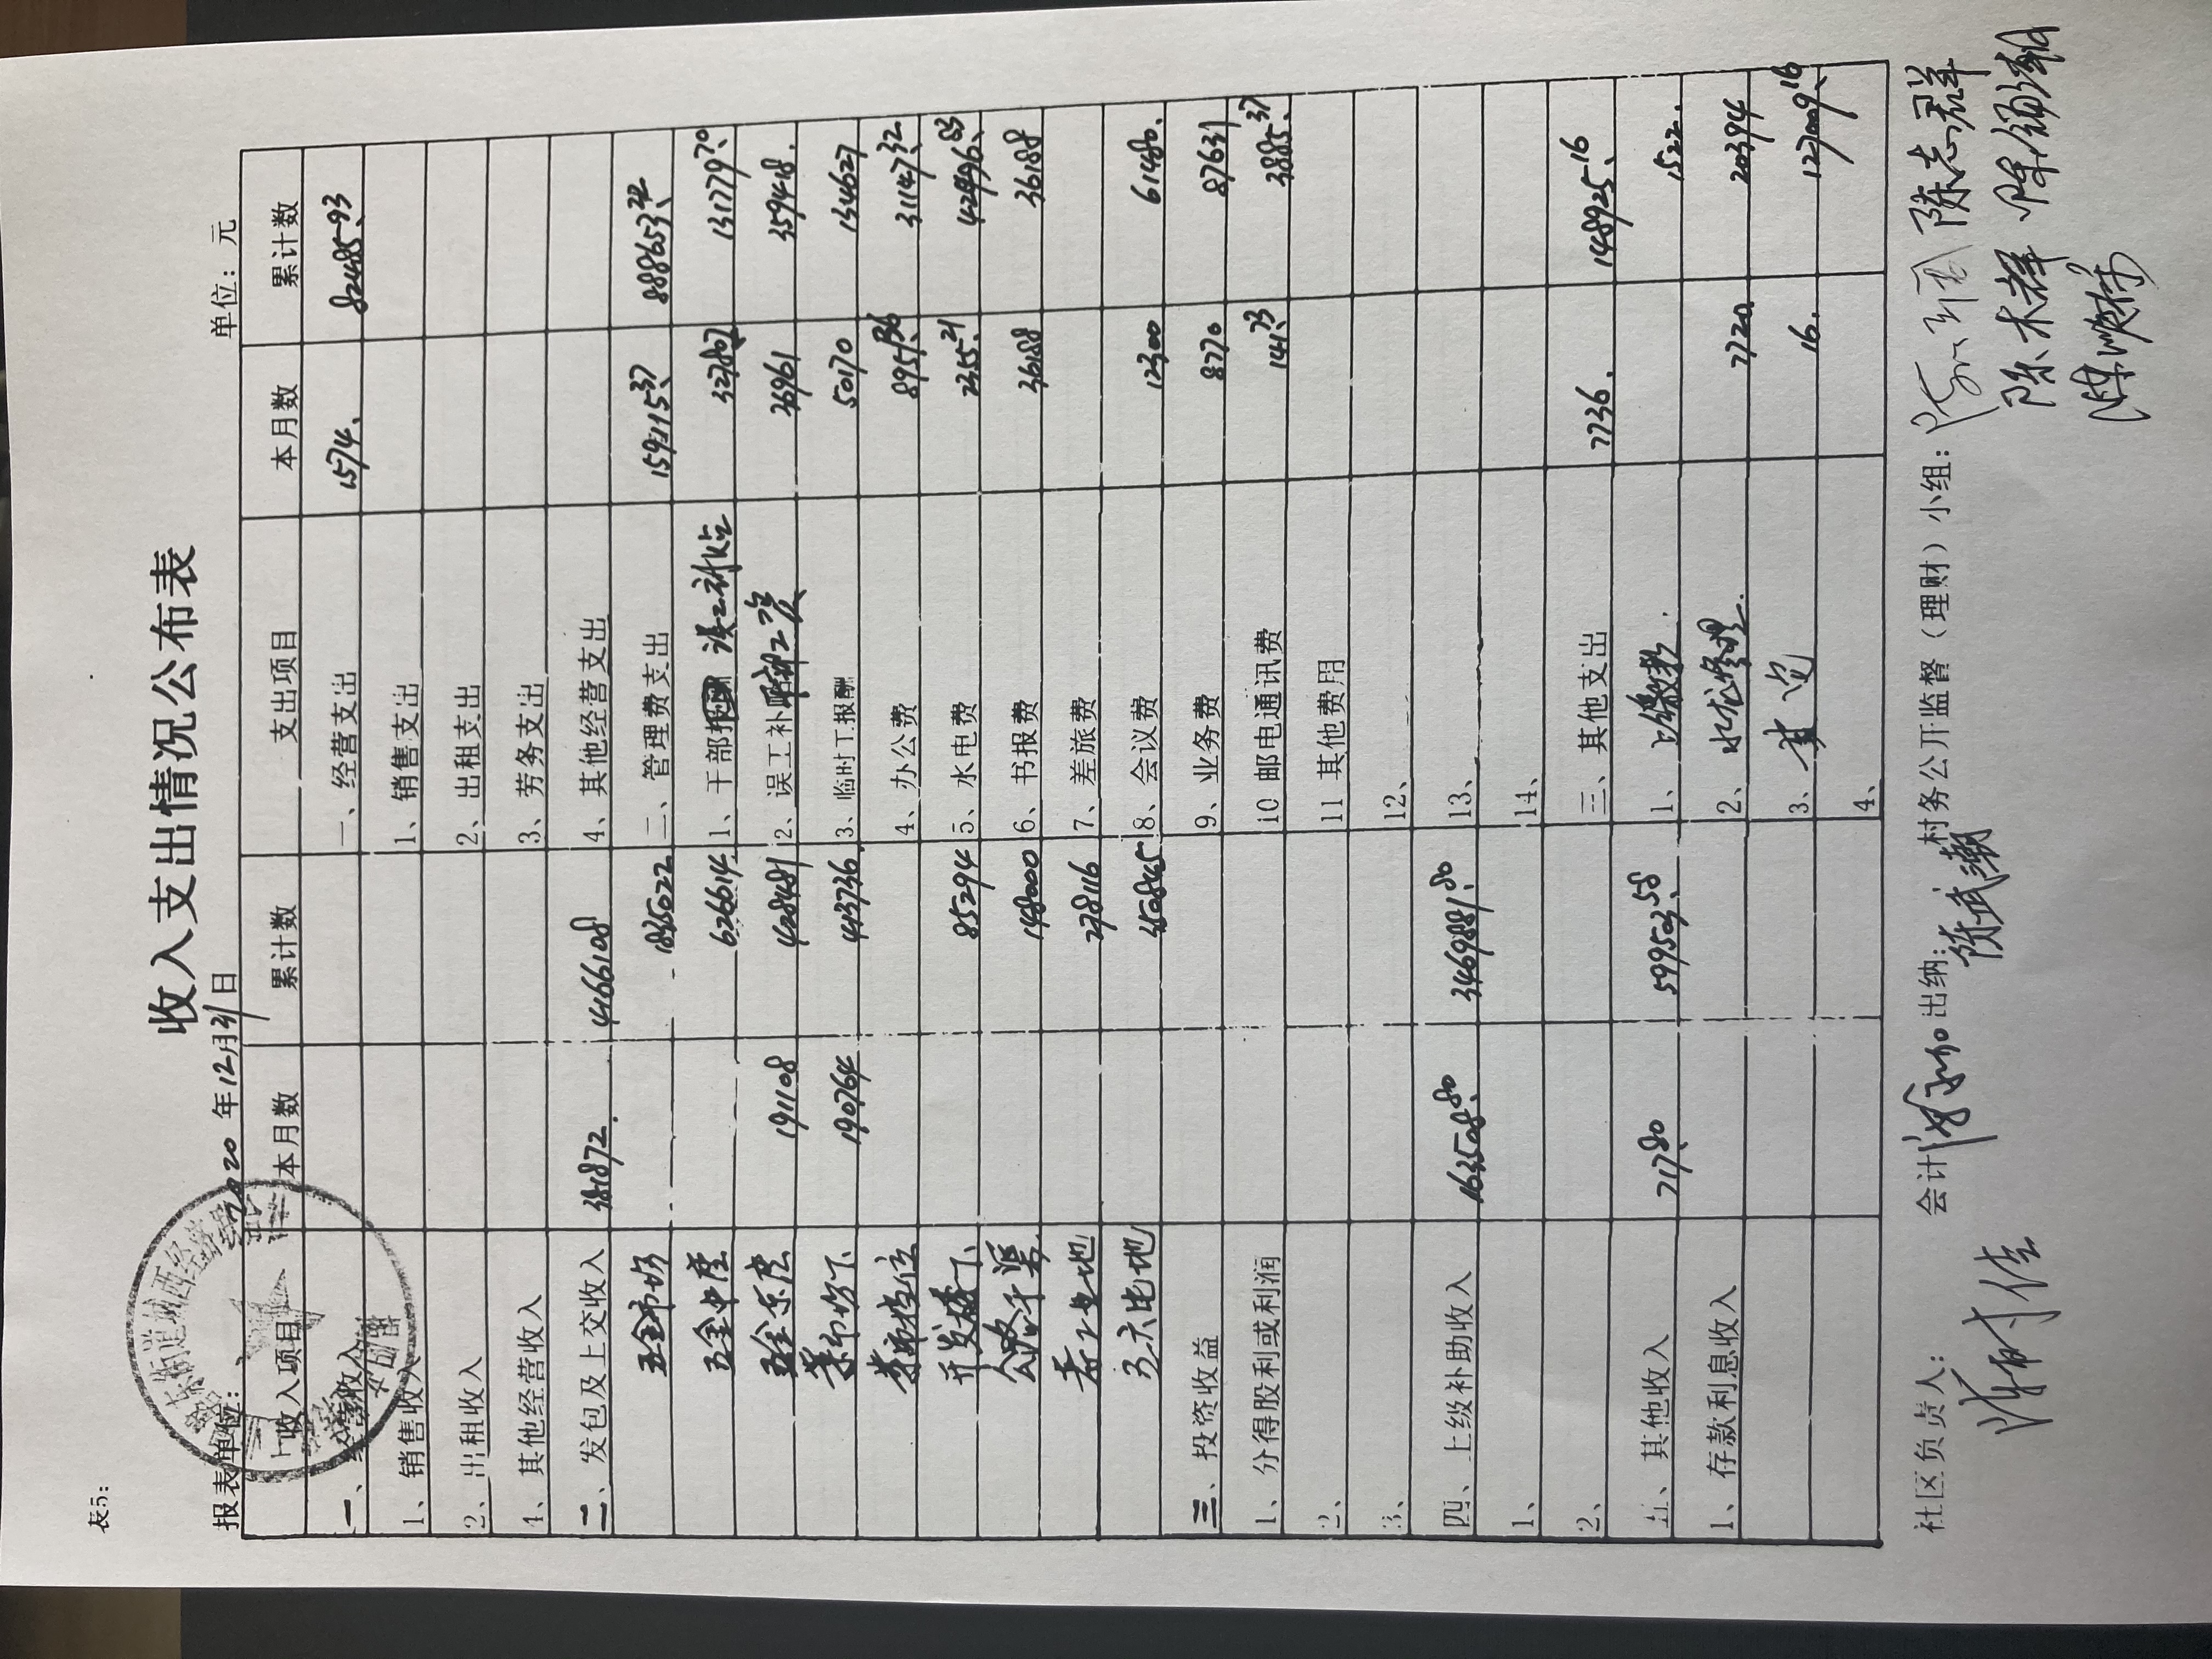 表5:
收入支出情况公布表
报表单位: 2020 年 12 月 31 日 单位: 元
收入项目 本月数 累计数 支出项目 本月数 累计数
一、经营收入 一、经营支出 1574. 82485.93
1、销售收入 1、销售支出
2、出租收入 2、出租支出
4、其他经营收入 3、劳务支出
二、发包及上交收入 381872. 4466108 4、其他经营支出
五金市场 1835022 二、管理费支出 159115.37 888653.22
五金中座 626614 1、干部 误工补贴 32802 131779.70
五金东座 191108 428481 2、误工补 36961 359418.
菜市场下 190764 443736. 3、临时工报酬 50170 134627
菜市档位 4、办公费 8951.36 31147.32
开发楼下 85294 5、水电费 2355.21 42996.83
公路干渠 148000 6、书报费 36188 36188
278116 7、差旅费
三六屯地 350845 8、会议费 12300 61480.
三、投资收益 9、业务费 8770 87631
1、分得股利或利润 10 邮电通讯费 141.73 3885.37
2、 11 其他费用
3、 12、
四、上级补助收入 163508.80 3469881.80 13、
1、 14、
2、 三、其他支出 7736. 148925.16
五、其他收入 217.80 599503.58 1、 1522.
1、存款利息收入 2、水龙修理. 7720. 20394
3、其它 16. 127009.16
4、
社区负责人: 会计 出纳: 陈武潮 村务公开监督（理财）小组: 陈志群
陈木祥